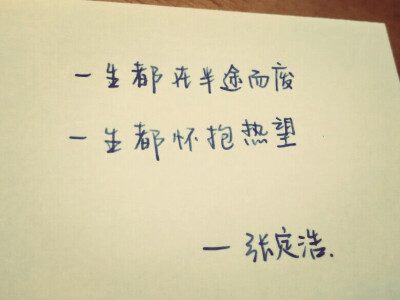 一生都在半途而废
一生都怀抱热望
— 张定浩.